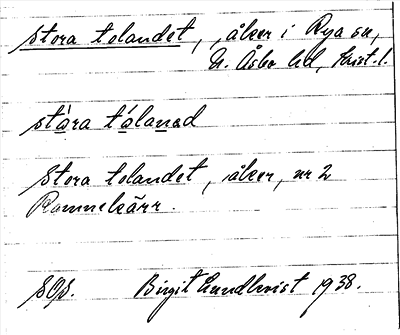 Stora tolandet, åker i Rya sn,
N. Åsbo hd, Krist. l.
stàra tålanad
Stora tolandet, åker, nr 2
Rammekärr.
SOS. Birgit Lundkvist 1938.